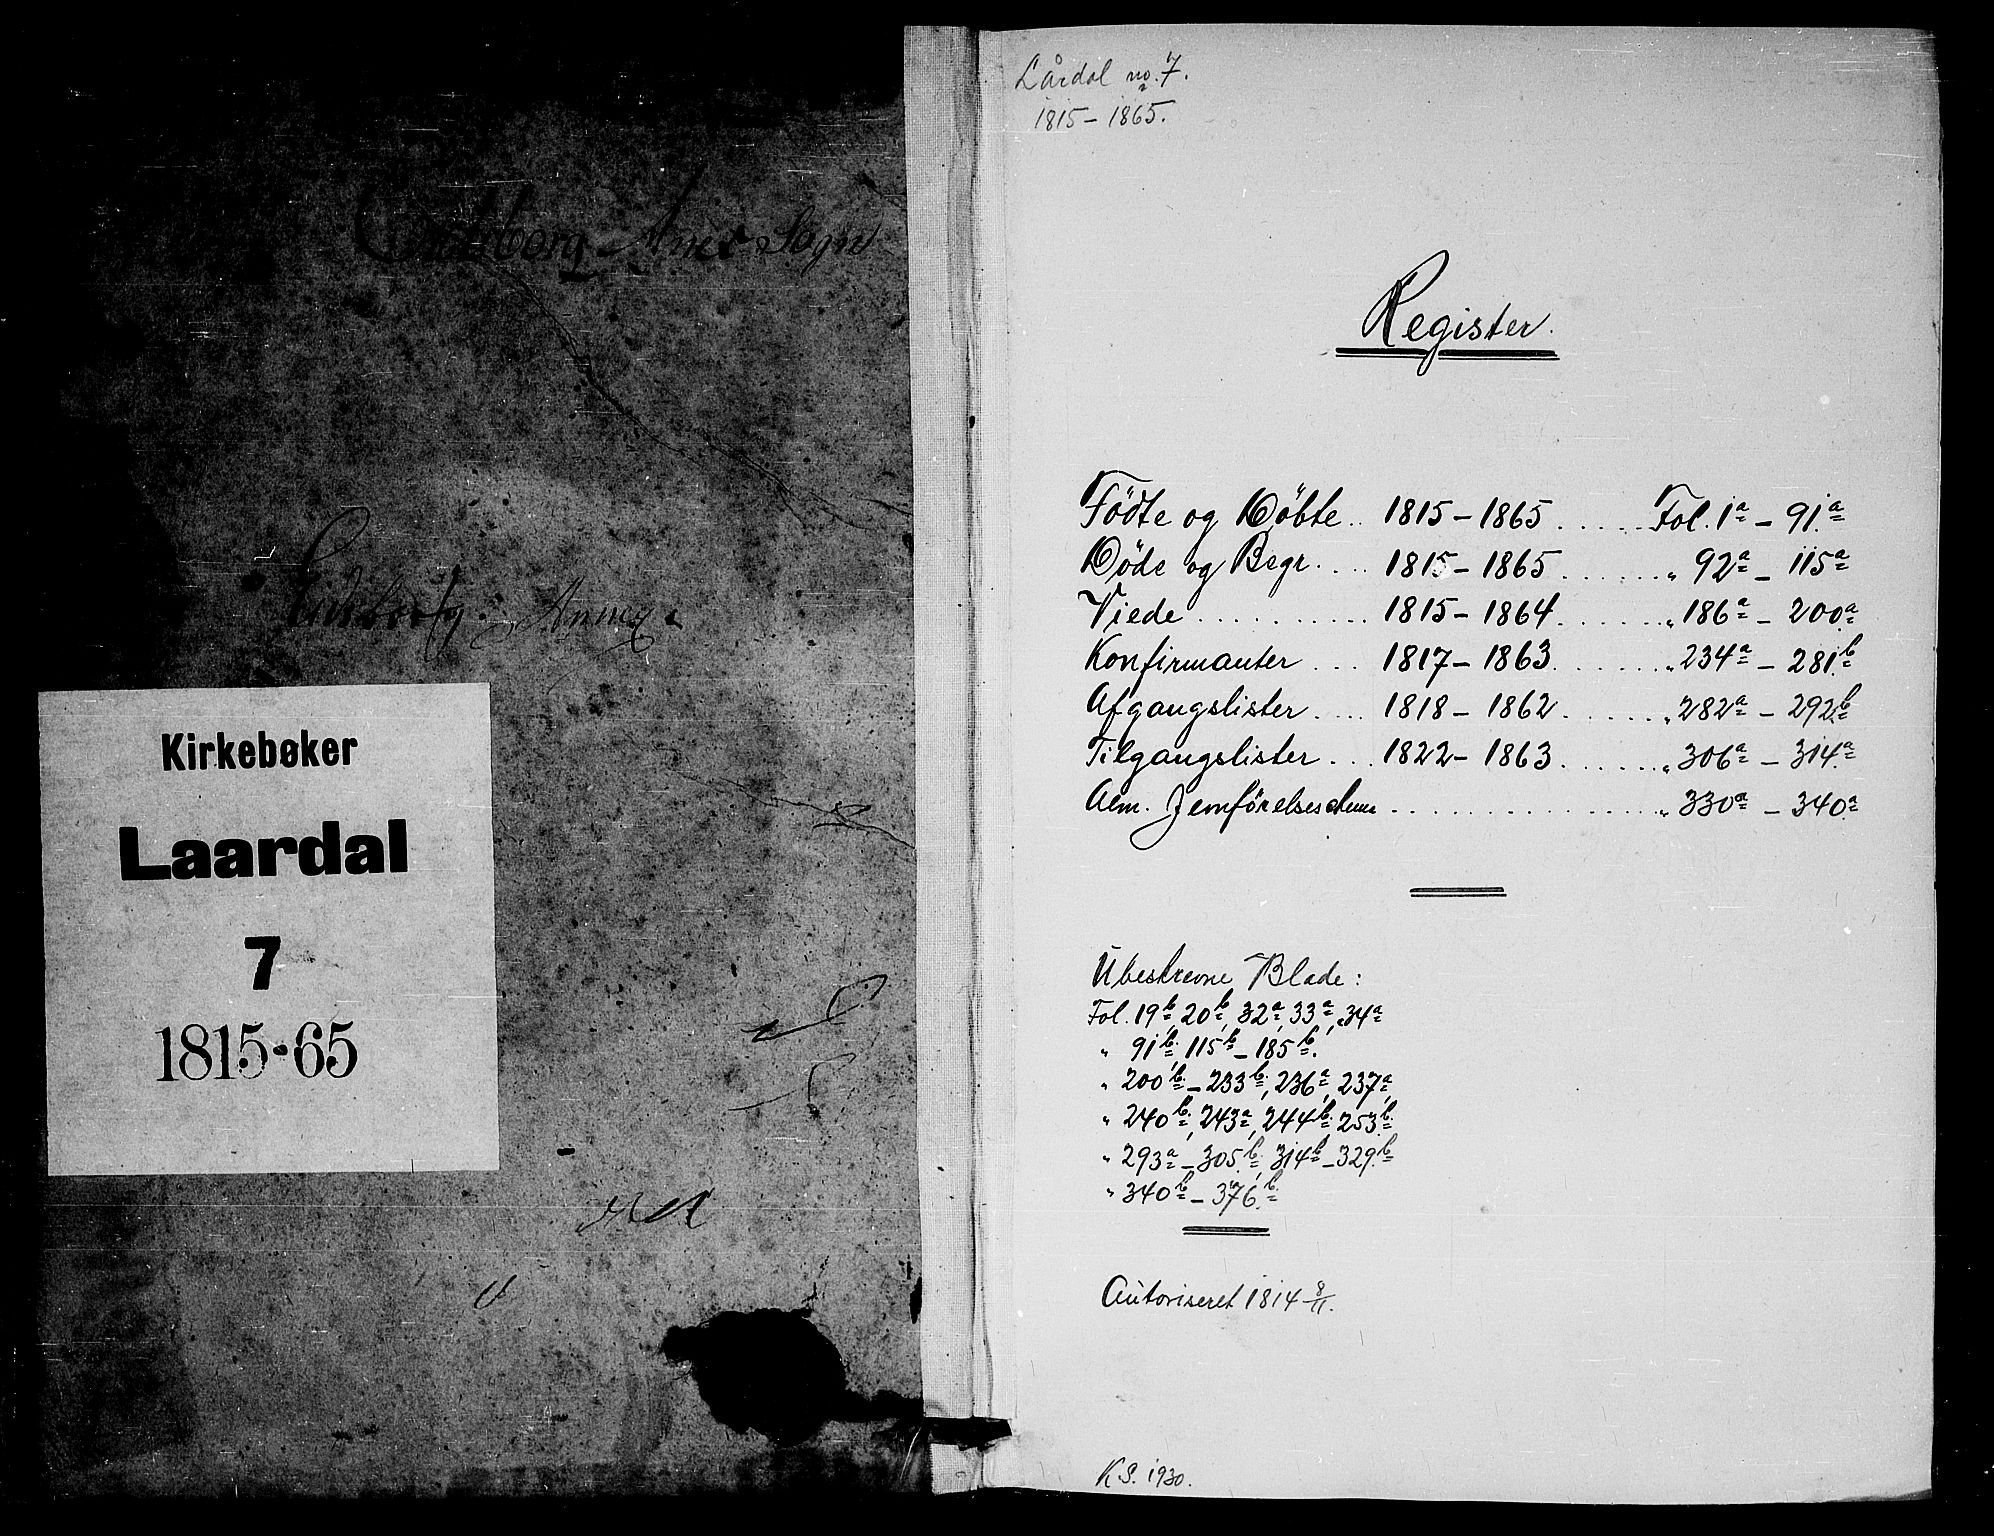 Annex Sogn
Eidsborg Annex
Kirkebøker
Laardal
7
1815-65
Lårdal no. 7.
1815 - 1865.
Register.
Födte og Döbte .. 1815 - 1865 ..... Fol. 1a - 91a
Döde og Begr. ... 1815 - 1865 ...... „ 92a - 115a
Viede .......... 1815 - 1864 ...... „ 186a - 200a
Konfirmanter ... 1817 - 1863 ...... „ 234a - 281b
Afgangslister .... 1818 - 1862 ...... „ 282a - 292b
Tilgangslister ... 1822 - 1863 ...... „ 306a - 314a
Alm. Jemförelses ................ „ 330a - 340a
Ubeskrevne Blade:
Fol. 19b, 20b, 32a, 33a, 34a
„ 91b, 115b - 185b.
„ 200b - 233b, 236a, 237a,
„ 240b, 243a, 244b, 253b.
„ 293a - 305b, 314b - 329b
„ 340b - 376b.
Autoriseret 1814 8/11.
K S. 1930.